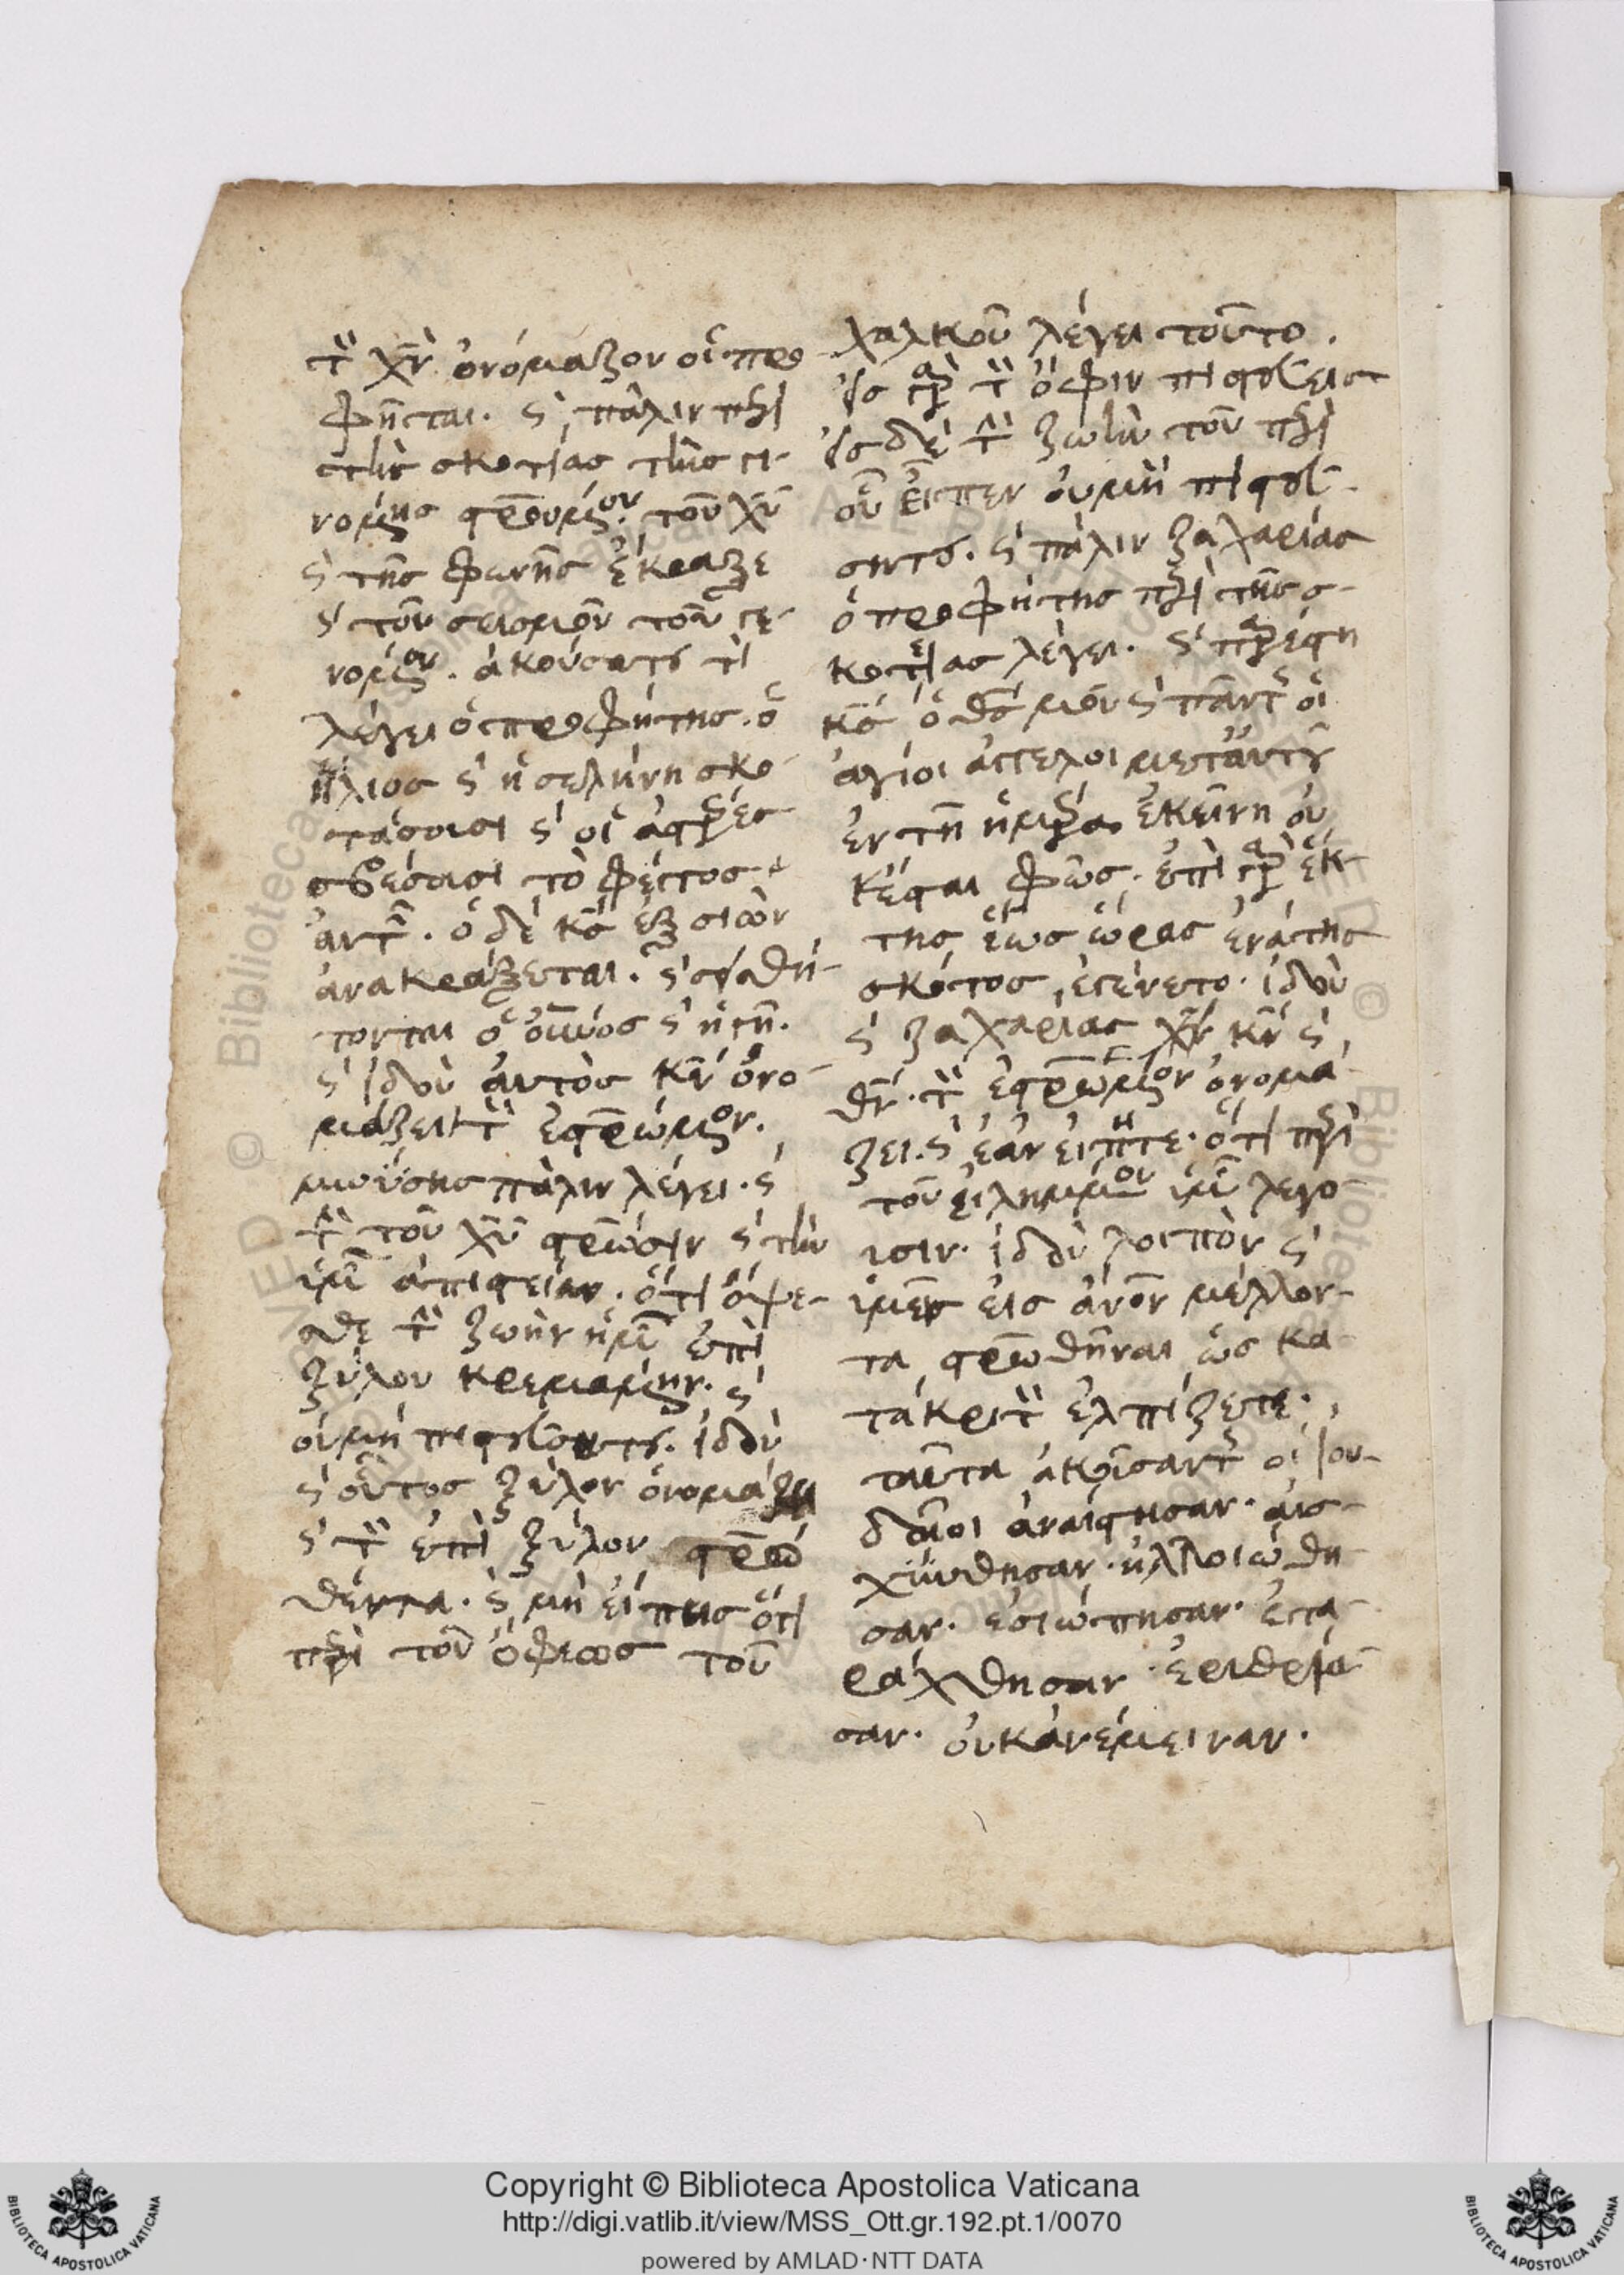 τὸν χν ὀνόμαζον οἱ προ
φῆται. ϛ πάλιν περὶ
τῆς σκοτίας τῆς γε-
νομένης στρουμένου τοῦ χυ
ϛ τῆς φωνῆς ἔκραξε
ϛ τοῦ σεισμοῦ τοῦ γε-
νομένου. ἀκούσατε τί
λέγει ὁ προφήτης. ὁ
ἥλιος ϛ ἡ σελήνη σκο-
τάσουσι ϛ οἱ ἀστέρες
σβέσουσι τὸ φέγγος
αὐτῶν. ὁ δὲ κς ἐξ σιὼν
ἀνακράξεται. ϛ σισθή-
σονται ὁ οὐνος ϛ ἡ γῆ.
ϛ ἰδοὺ αὐτὸς κν ὀνο-
μάζει τὸν ἐστρωμένον.
μωϋσης πάλιν λέγει. ϛ
τὴν τοῦ χυ στρωσιν ϛ τὴν
ὑμῶν ἀπιστείαν. ὅτι ὄψε-
σθε τὴν ζωὴν ἡμῶν ἐπὶ
ξύλου κρεμαμένην. ϛ
οὐ μὴ πιστεύσητε. ἰδοὺ
ϛ οὗτος ξύλον ὀνομάζει
ϛ τὸν ἐπὶ ξύλου στρω
θέντα. ϛ μὴ εἴπεις ὅτι
περὶ τοῦ ὄφεως τοῦ
χαλκοῦ λέγει τοῦτο.
εἰς γὰρ τὸν ὄφιν πιστεύεις
εἰς δὲ τὴν ζωὴν τοῦ περὶ
οὗ εἶπεν οὐ μὴ πιστεύ-
σητε. ϛ πάλιν ζαχαρίας
ὁ προφήτης περὶ τῆς σ-
κοτίας λέγει. ϛ παρέστη
κς ὁ θς μου ϛ πάντες οἱ
ἅγιοι ἄγγελοι μετ αὐτοῦ
ἐν τῇ ἡμέρα ἐκείνη οὐ
κ έσται φῶς. ἐπὶ γὰρ ἕκ-
της ἕως ὥρας ἐνάτης
σκότος ἐγένετο. ἰδοὺ
ϛ ζαχαρίας χν κν ϛ
θν. τὸν ἐστρωμένον ὀνομά-
ζει. ϛ ἐὰν εἴπητε. ὅτι περὶ
τοῦ εἰλημμένου ὑμῖν λέγο-
υσιν. ἰδοὺ λοιπὸν ϛ
ὑμεῖς εἰς ἀνον μέλλον-
τα στρωθῆναι ὡς κα-
τάκριτον ἐλπίζετε.
ταῦτα ἀκούσαντες οἱ ἰου-
δαῖοι ἀναίστησαν. αἰσ-
χύνθησαν. ἠλλοιώθη-
σαν. ἐσιώπησαν. ἐτα-
ράχθησαν. ἐριθρία-
σαν. οὐκ ἀνέμειναν.
Copyright © Biblioteca Apostolica Vaticana
http://digi.vatlib.it/view/MSS_Ott.gr.192.pt.1/0070
powered by AMLAD·NTT DATA